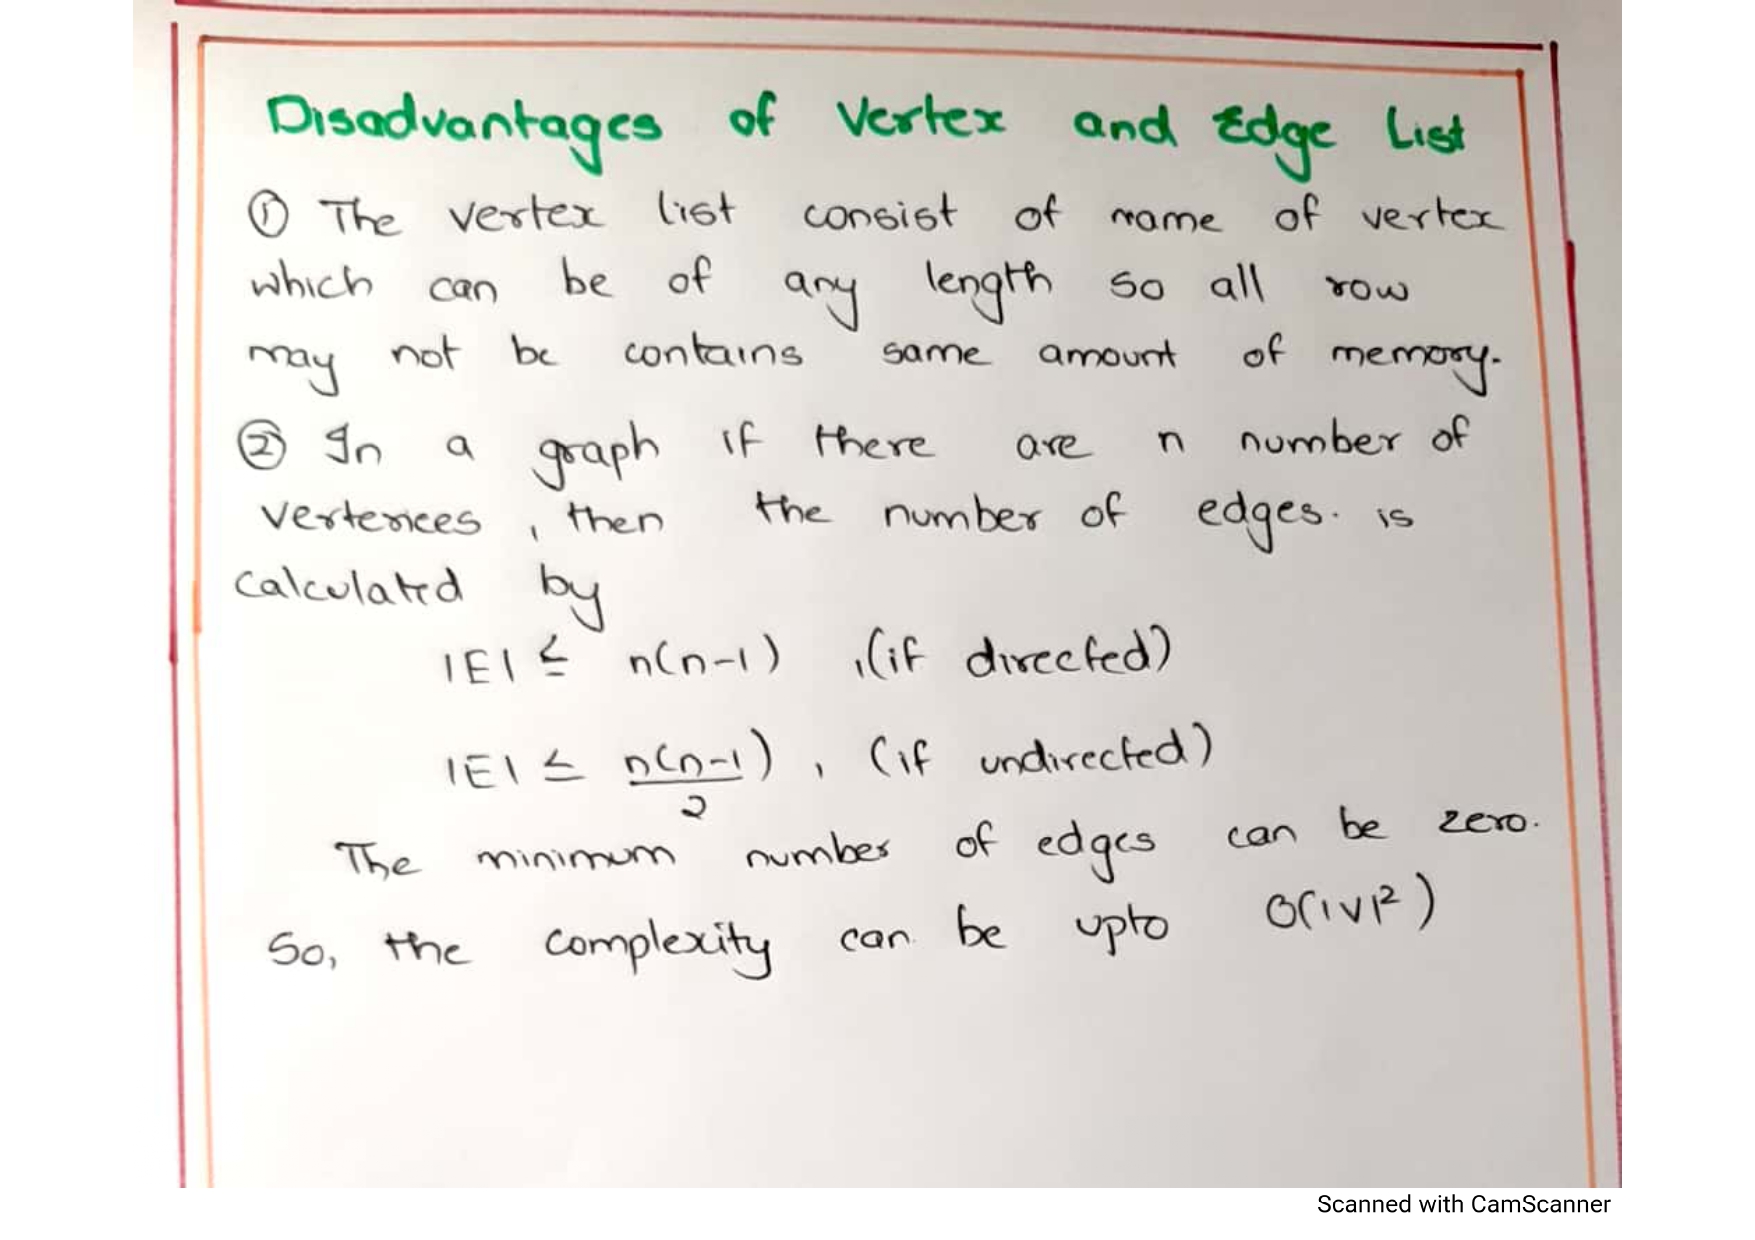 Disadvantages of Vertex and Edge List
① The vertex list consist of name of vertex
which can be of any length so all row
may not be contains same amount of memory.
② In a graph if there are n number of
vertexices , then the number of edges. is
calculated by
|E| ≤ n(n-1) ,(if directed)
|E| ≤ n(n-1)/2 , (if undirected)
The minimum number of edges can be zero.
So, the complexity can be upto O(|V|²)
Scanned with CamScanner